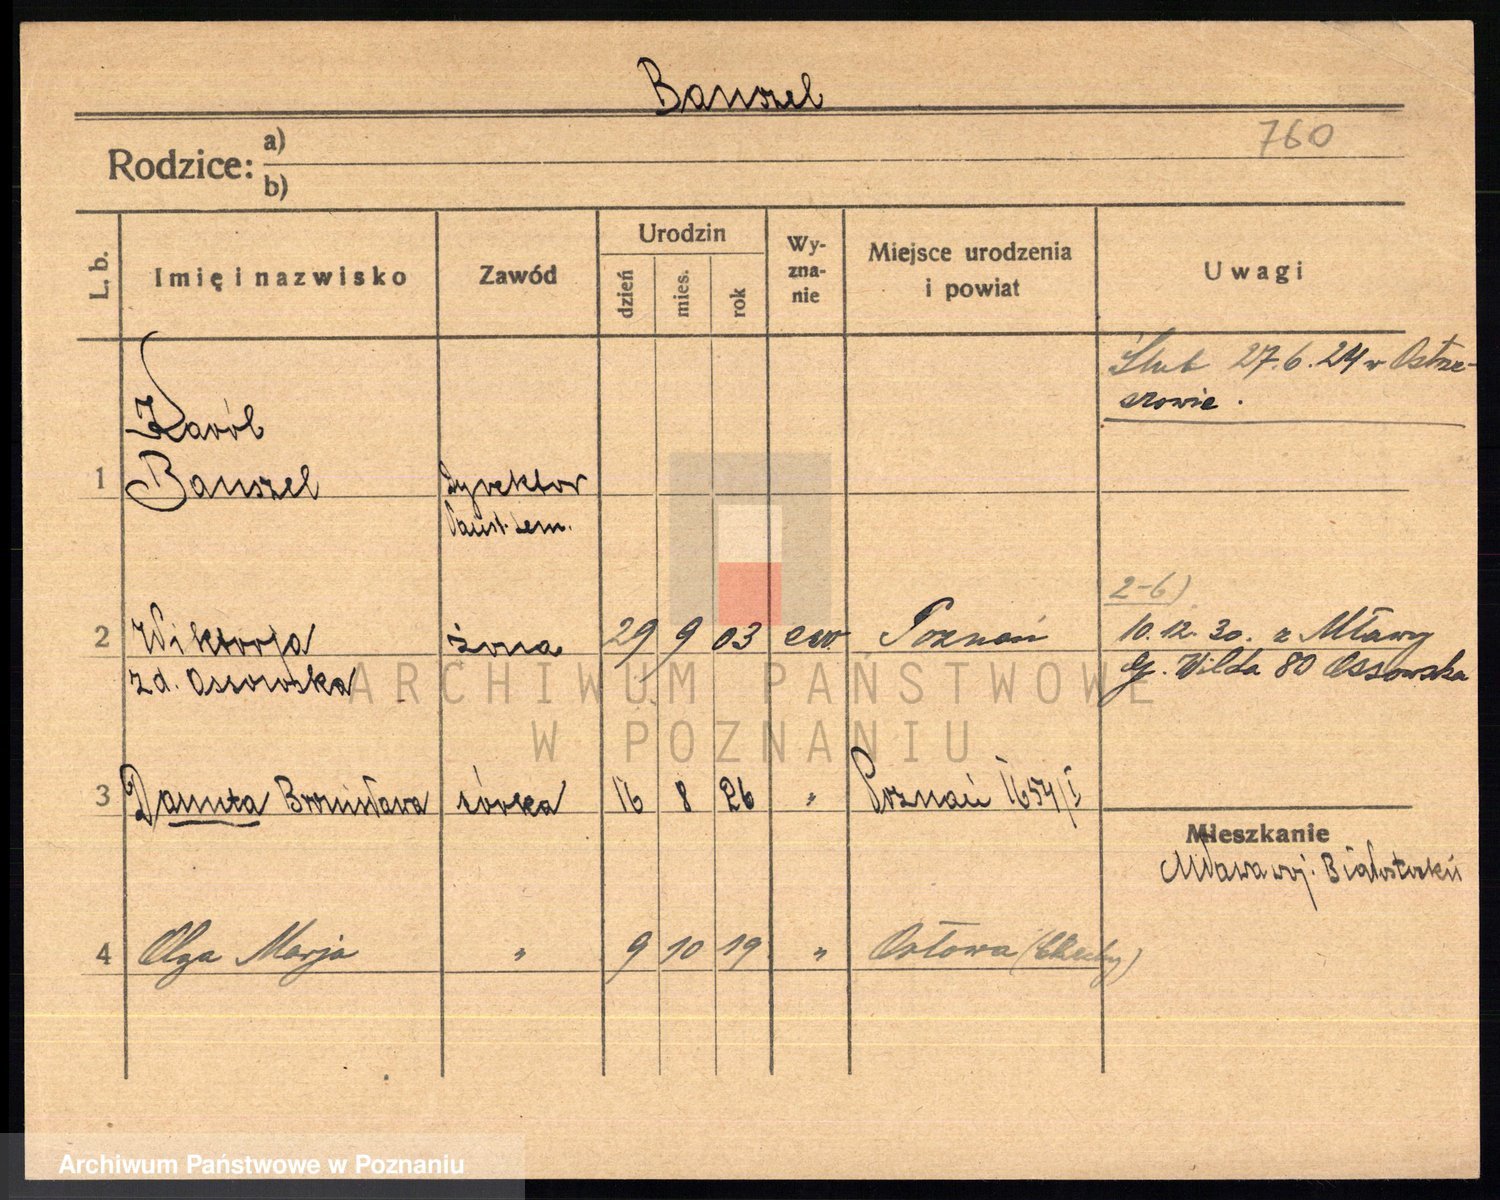 Banszel
760
Rodzice: a)
b)
L. b.
Imię i nazwisko
Zawód
Urodzin
dzień
mies.
rok
Wy-
zna-
nie
Miejsce urodzenia
i powiat
Uwagi
Ślub 27.6.24 w Ostrze-
szowie.
Karól
1 Banszel Dyrektor
Państ. Sem.
2-6)
2 Wiktorja żona 29 9 03 ew. Poznań 10.12.30. z Mławy
zd. Ossowska G. Wilda 80 Ossowska
3 Danuta Bronisława córka 16 8 26 " Poznań 1654/I
Mieszkanie
Mława woj.
4 Olga Marja " 9 10 19 " Orłowa
ARCHIWUM PAŃSTWOWE
W POZNANIU
Archiwum Państwowe w Poznaniu